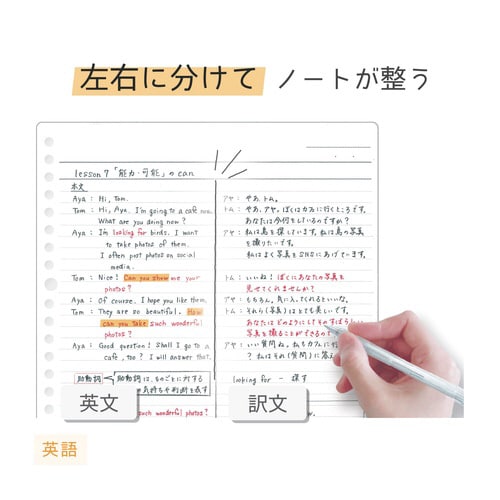 左右に分けて ノートが整う
lesson 7 「能力・可能」の can
本文
Aya : Hi, Tom.
Tom : Hi, Aya. I'm going to a cafe now.
What are you doing now?
Aya : I'm looking for birds. I want
to take photos of them.
I often post photos on social
media.
Tom : Nice! Can you show me your
photos?
Aya : Of course. I hope you like them.
Tom : They are so beautiful. How
can you take such wonderful
photos?
Aya : Good question! Shall I go to a
cafe, too? I will answer that.
助動詞 助動詞は、ものごとに対する
気持ちや判断を表す
such wonderful photos?
アヤ : やあ、トム。
トム : やあ、アヤ。ぼくはカフェに行くところです。
あなたは今何をしているのですか?
アヤ : 私は鳥を探しています。私は鳥の写真
を撮りたいです。
私はよく写真をSNSにあげています。
トム : いいね! ぼくにあなたの写真を
見せてくれませんか?
アヤ : もちろん。気に入ってくれるといいな。
トム : それら(写真)はとても美しいです。
あなたはどのようにしてそのすばらしい
写真を撮ることができるので
アヤ : いい質問ね。私もカフェに行
? 私はそれ(質問)に答
looking for ー 探す
英文
訳文
英語